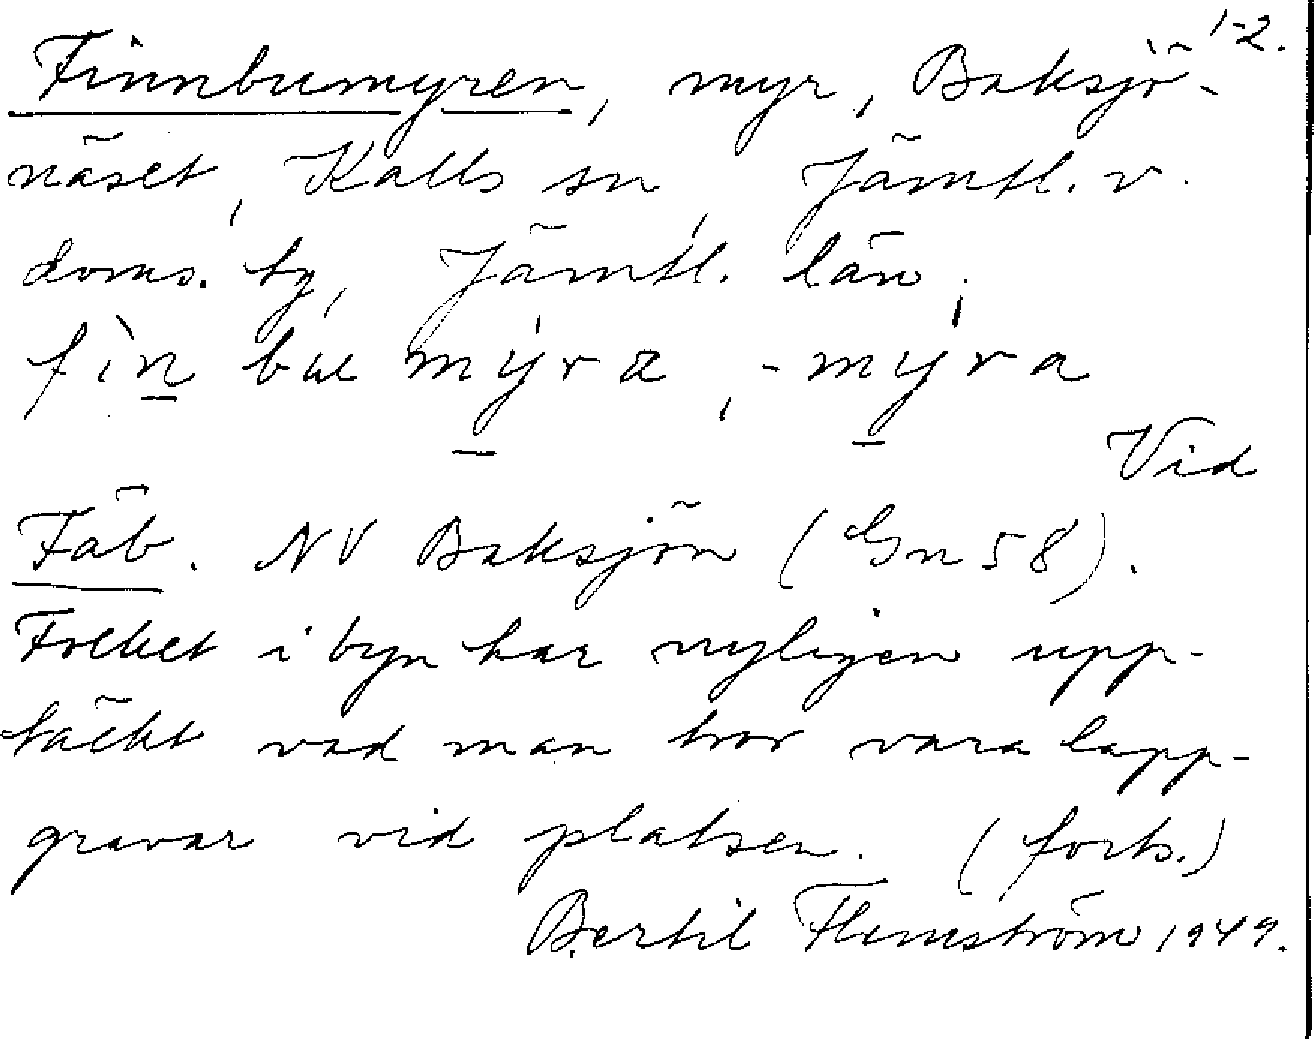 1-2.
Finnbumyren, myr, Baksjö-
näset, Kalls sn, Jämtl. v.
doms. hg, Jämtl. län,
fìn bu mýra, -mỳra
Vid
Fäb. NV Baksjön (Gn 58).
Folket i byn har nyligen upp-
täckt vad man tror vara lapp-
gravar vid platsen. (forts.)
Bertil Flemström 1949.